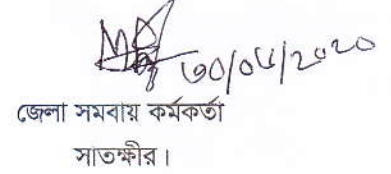 ৩০/০৬/২০২০
জেলা সমবায় কর্মকর্তা
সাতক্ষীর।